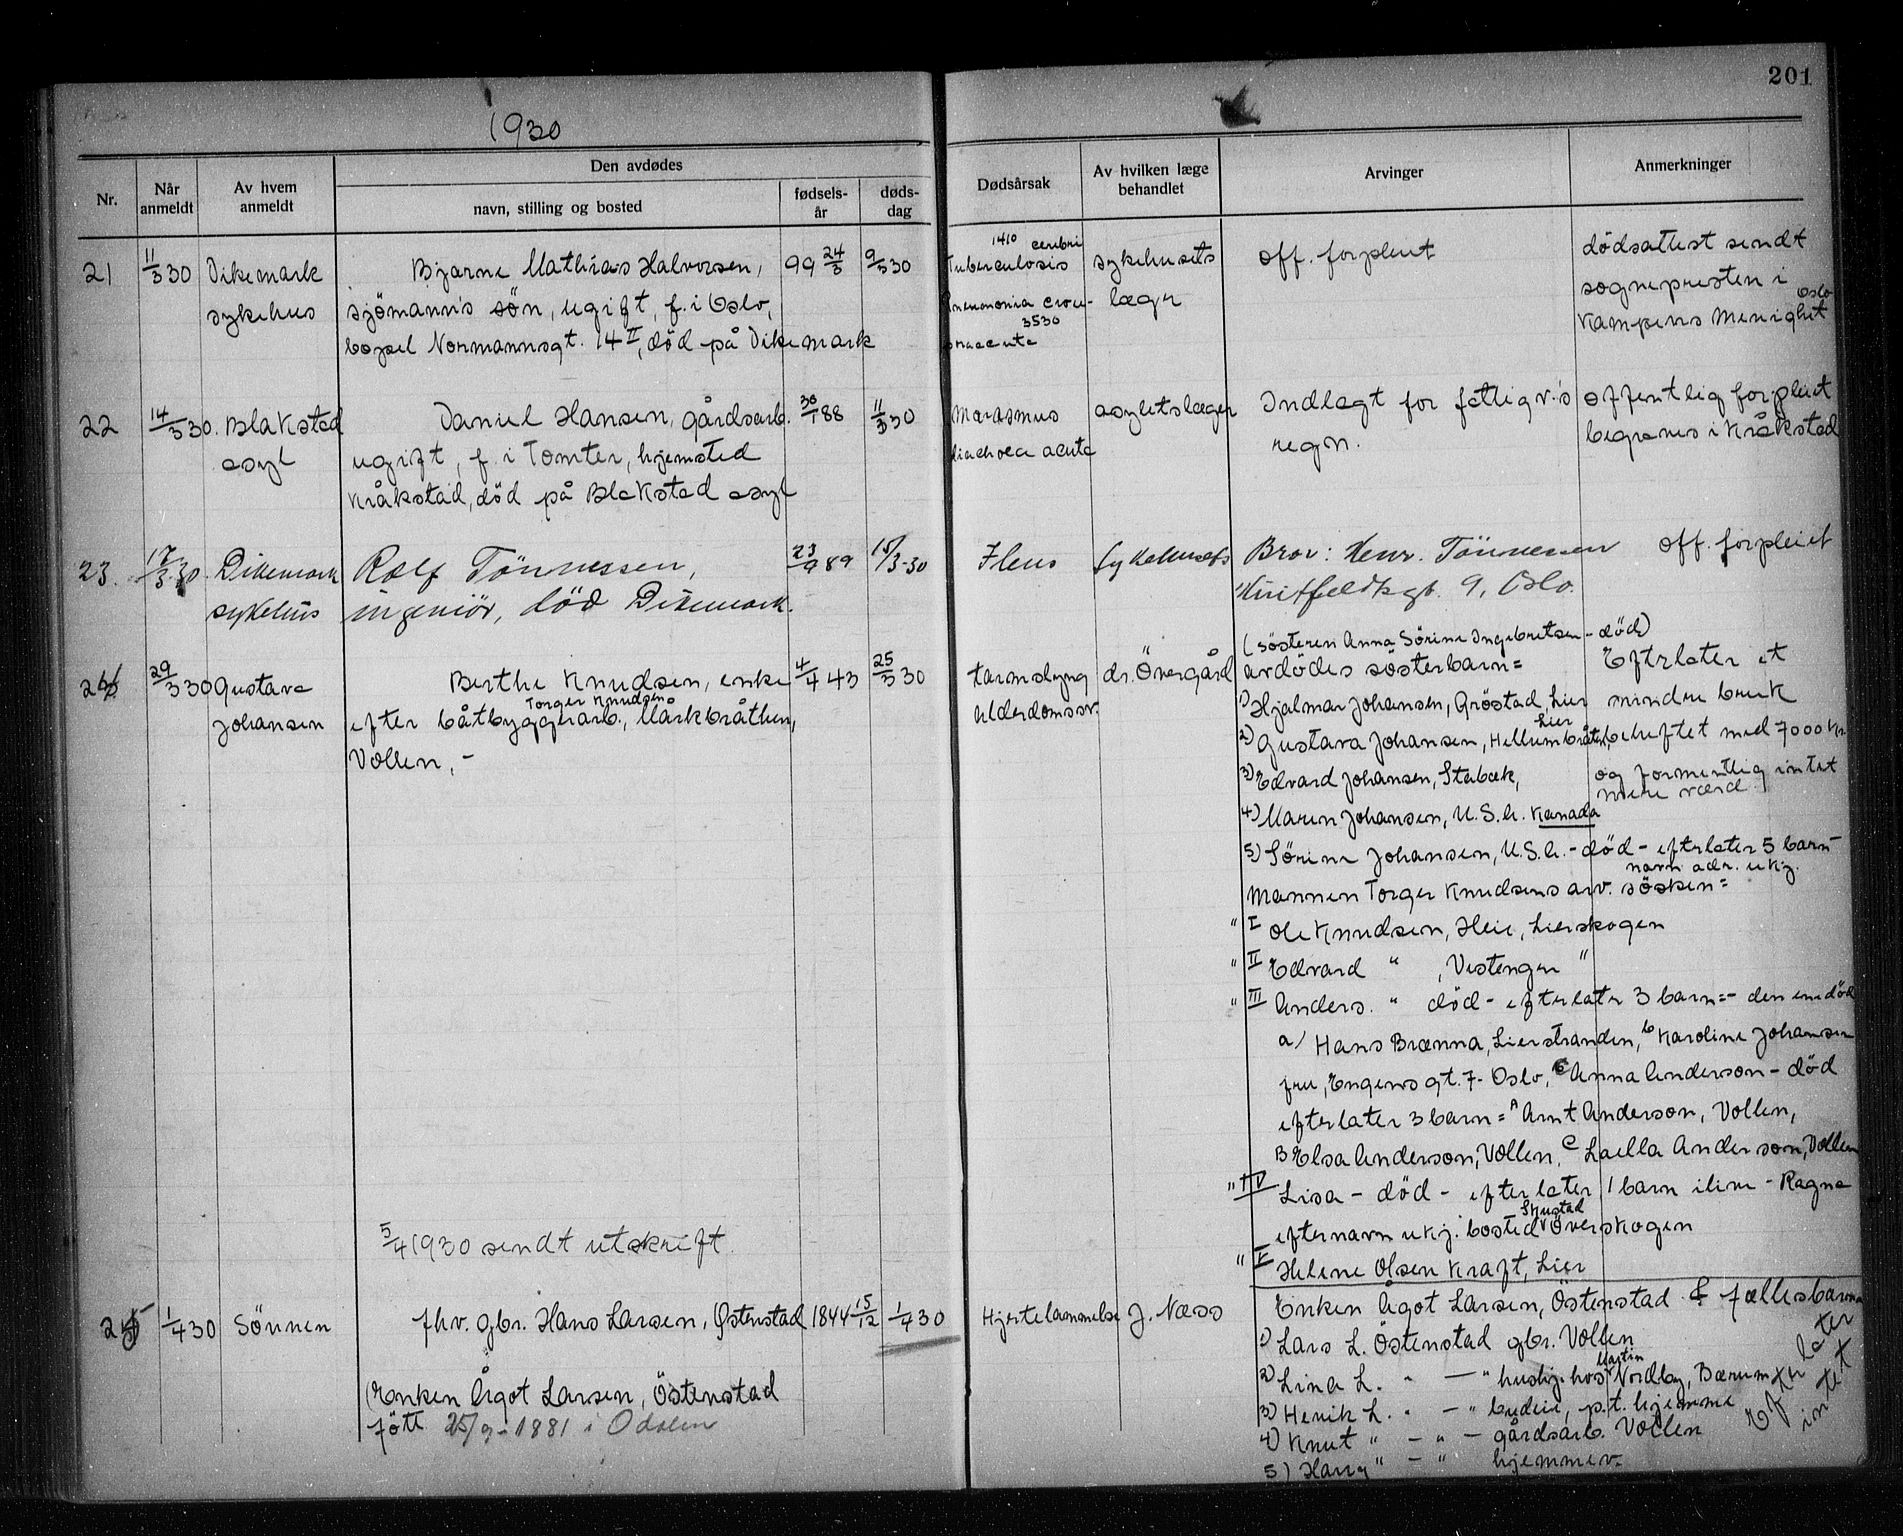 201
1930
Nr.
Når anmeldt
Av hvem anmeldt
Den avdødes
navn, stilling og bosted
fødsels-år
døds-dag
Dødsårsak
Av hvilken læge behandlet
Arvinger
Anmerkninger
21 11/3 30 Dikemark sykehus
Bjarne Mathias Halvorsen,
sjömanns sön, ugift, f. i Oslo,
bopel Normannsgt. 14 II, död på Dikemark
99 24/3 9/3 30
1410 cerebri
Tuberculosis
Pneumonia
3530
sykehusets
læge
off. forpleiet
dödsattest sendt
sognepresten i Oslo
Kampens Menighet
22 14/3 30. Blakstad
asyl
Daniel Hansen, gårdsarb.
ugift, f. i Tomter, hjemsted
Kråkstad, död på Blakstad asyl
30/1 88 11/3 30
Marasmus
acuta
asylets læger
Indlagt for fattigv.'s
regn.
offentlig forpleiet
begraves i Kråkstad
23. 17/3 30. Dikemark
sykehus
Rolf Tönnessen,
ingeniör, död Dikemark.
23/9 89 15/3-30
Ileus
Sykehusets
Bror: Henr. Tönnessen
Huitfeldtsgt. 9, Oslo.
off. forpleiet
24 29/3 30 Gustava
Johansen
Berthe Knudsen, enke
Torger Knudsen
efter båtbyggerarb., Mårkbråthen,
Vollen, -
4/4 43 25/3 30
tarmslyng
Alderdomssv.
dr. Övergård
(Søsteren Anna Sörine Ingebretsen - död)
avdödes sösterbarn =
1) Hjalmar Johansen, Gröstad, Lier
Lier
2) Gustava Johansen, Hellumbråten,
3) Edvard Johansen, Stabæk,
4) Maren Johansen, U.S.A. Kanada
5) Sörine Johansen, U.S.A. - död - efterlater 5 barn -
navn adr. ukj.
Efterlater et
mindre bruk
beheftet med 7000 kr.
og formentlig intet
mere værd
Mannen Torger Knudsens arv. sösken =
" I Ole Knudsen, Heie, Lierskogen
" II Edvard " , Vestengen "
" III Anders. " död - efterlater 3 barn = - den ene död
a/ Hans Brænna, Lierstranden, b Karoline Johansen
fru, Engens gt. 7 - Oslo, C Anna Anderson - död
efterlater 3 barn = A Arnt Anderson, Vollen,
B Elsa Anderson, Vollen, C Laella Anderson, Vollen
" IV Lisa - död - efterlater 1 barn ilive - Ragna
Skustad
efternavn ukj. bosted Överskogen
" V Helene Olsen Kraft, Lier
5/4 1930 sendt utskrift.
25 1/4 30 Sönnen
fhv. gbr. Hans Larsen, Østenstad 1844 15/12 1/4 30
(Enken Ågot Larsen, Östenstad
født 25/9-1881 i Odalen
Hjertelammelse J. Næss
Enken Ågot Larsen, Östenstad & fællesbarna
1) Lars L. Östenstad gbr. Vollen
Martin
2) Lina L. " - " hushj. hos Nordby, Bærum
3) Henik L. " - " budeie, p.t. hjemme
4) Knut " - " - gårdsarb. Vollen
5) Harry " - " hjemmev.
Efterlater
intet